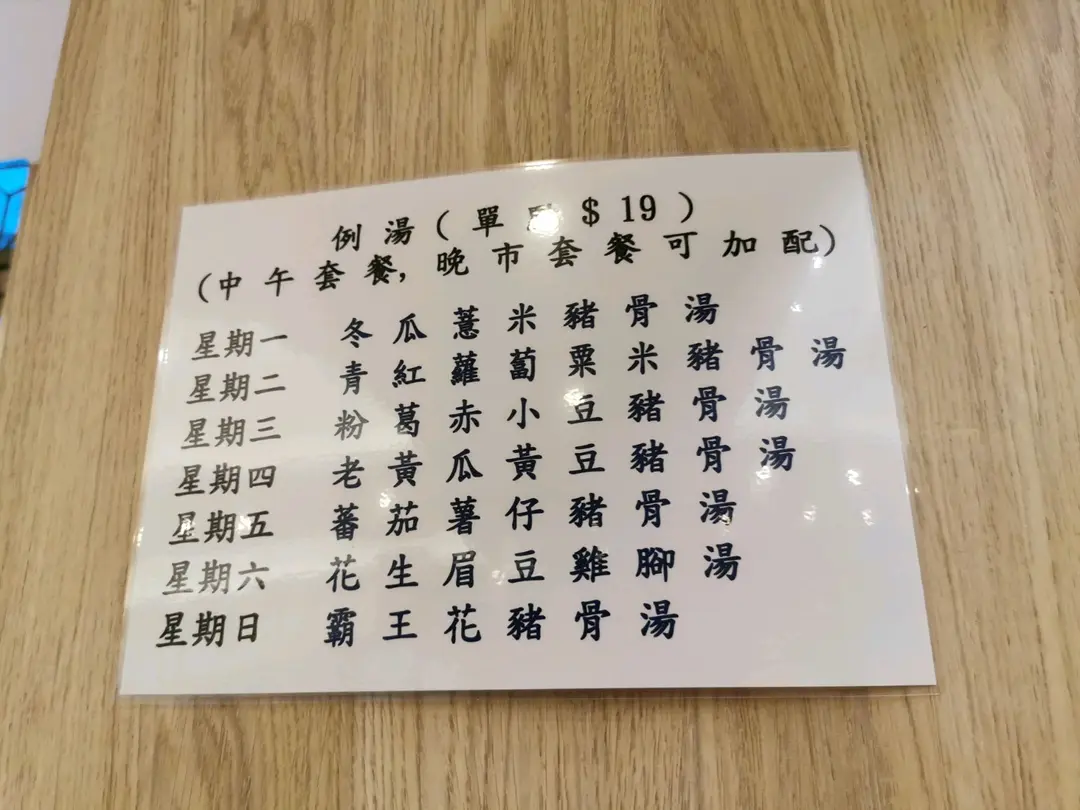 例湯(單點$19)
(中午套餐,晚市套餐可加配)
星期一 冬瓜薏米豬骨湯
星期二 青紅蘿蔔粟米豬骨湯
星期三 粉葛赤小豆豬骨湯
星期四 老黃瓜黃豆豬骨湯
星期五 蕃茄薯仔豬骨湯
星期六 花生眉豆雞腳湯
星期日 霸王花豬骨湯